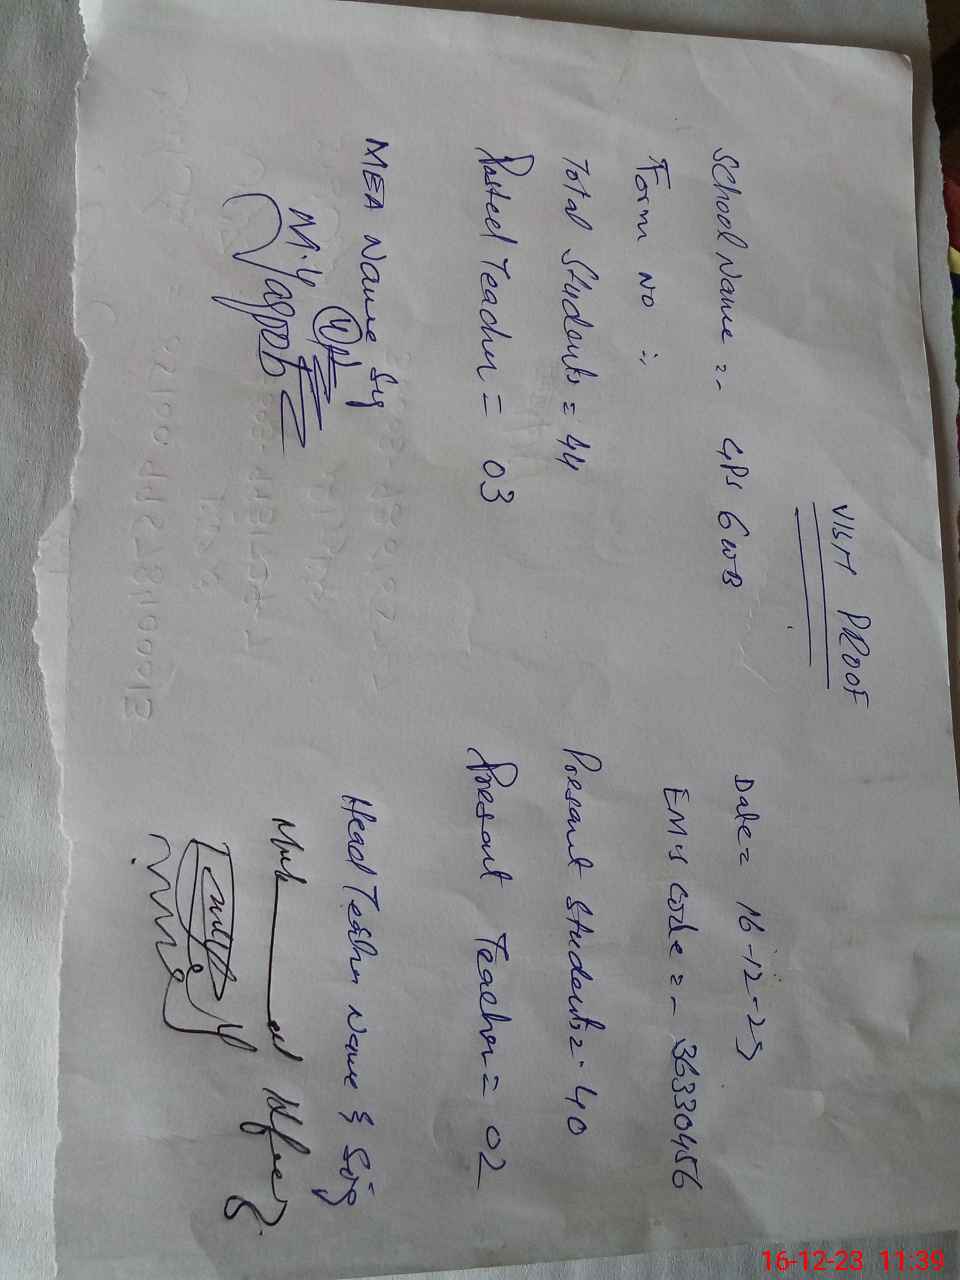 VISIT PROOF
School Name =- GPS GWB Date = 16-12-23
Form No :- EMIS Code =- 36330456
Total Students = 44 Present Students = 40
Posted Teacher = 03 Present Teacher = 02
MEA Name Sig Head Teacher Name & Sig
M. Yaqoob
16-12-23 11:39